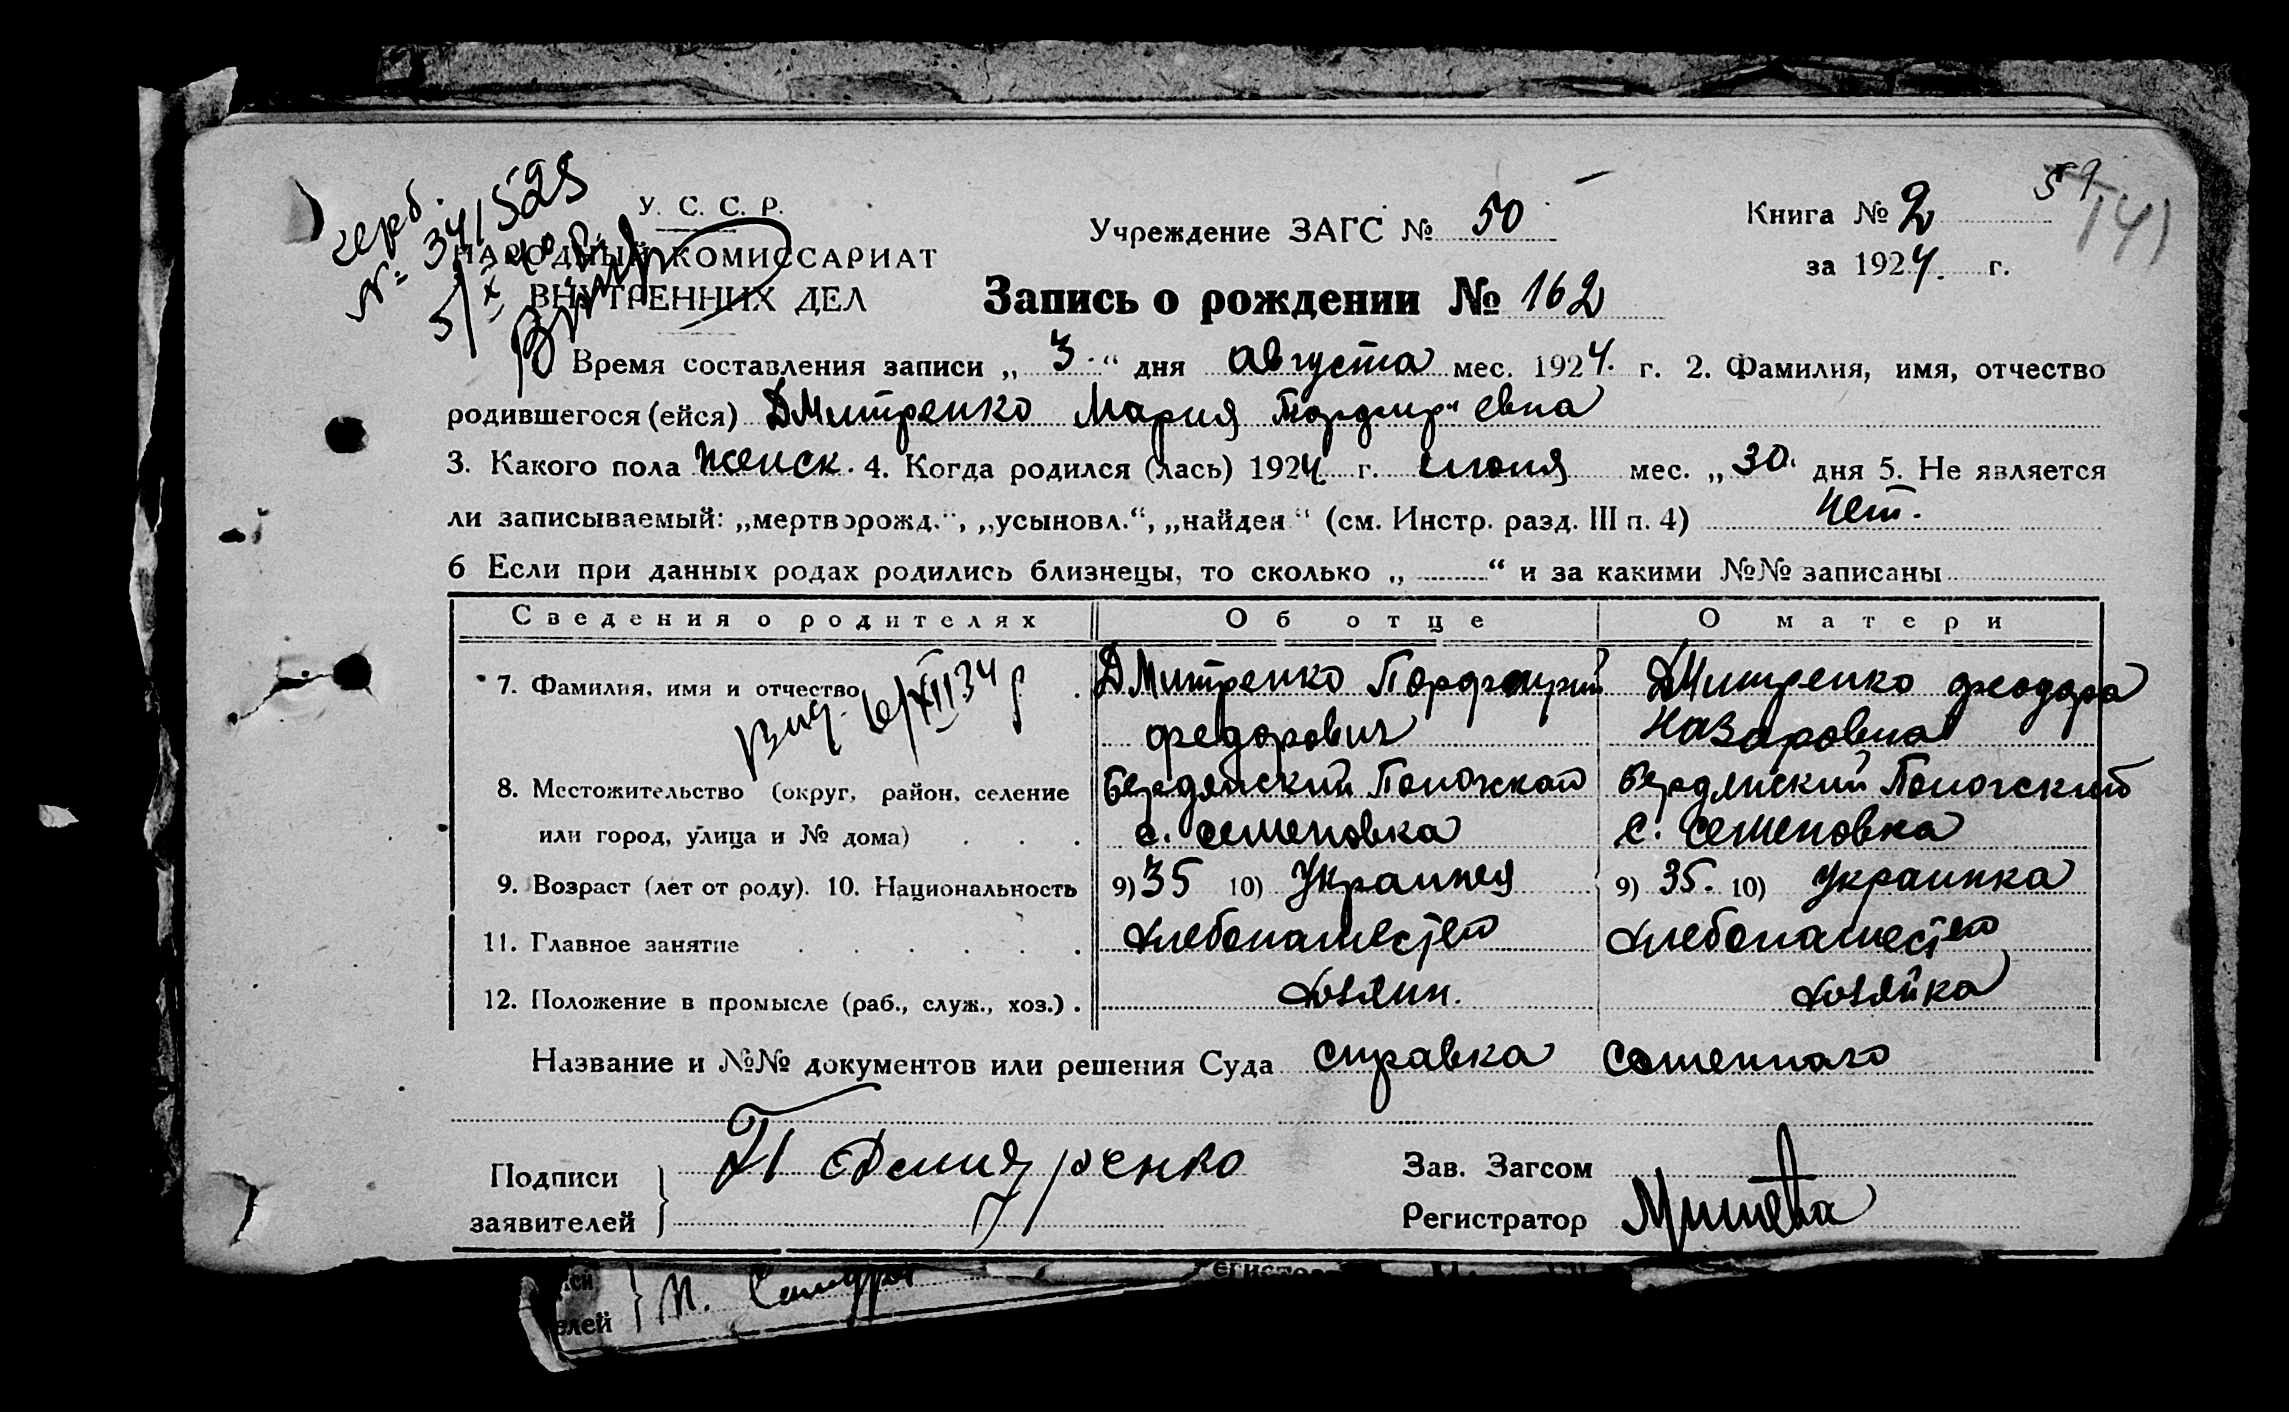 герб.
№ 341529
5/X
У. С. С. Р.
НАРОДНЫЙ КОМИССАРИАТ
ВНУТРЕННИХ ДЕЛ
Учреждение ЗАГС № 50
Книга № 2
за 1924. г.
59
141
Запись о рождении № 162
Время составления записи „ 3 “ дня августа мес. 1924. г. 2. Фамилия, имя, отчество
родившегося (ейся) Дмитренко Мария Порфирьевна
3. Какого пола женск. 4. Когда родился (лась) 1924 г. июля мес. „ 30 “ дня 5. Не является
ли записываемый: „мертворожд.“, „усыновл.“, „найден“ (см. Инстр. разд. III п. 4) Нет.
6 Если при данных родах родились близнецы, то сколько „ “ и за какими №№ записаны
Сведения о родителях Об отце О матери
7. Фамилия, имя и отчество Дмитренко Порфирий Дмитренко Феодора
Выд. 6/XII 34 Федорович Назаровна
8. Местожительство (округ, район, селение Бердянский Пологский Бердянский Пологский
или город, улица и № дома) с. Семеновка с. Семеновка
9. Возраст (лет от роду). 10. Национальность 9) 35 10) Украинец 9) 35. 10) Украинка
11. Главное занятие Хлебопашество Хлебопашество
12. Положение в промысле (раб., служ., хоз.) . Хозяин. Хозяйка
Название и №№ документов или решения Суда справка
Подписи
заявителей
Зав. Загсом
Регистратор
елей